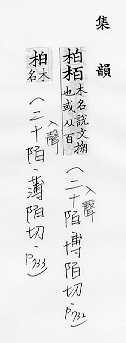 集韻
柏栢木名說文椈
也或从百
(入聲二十陌·博陌切·P732)
柏木
名
(入聲二十陌·薄陌切·P733)